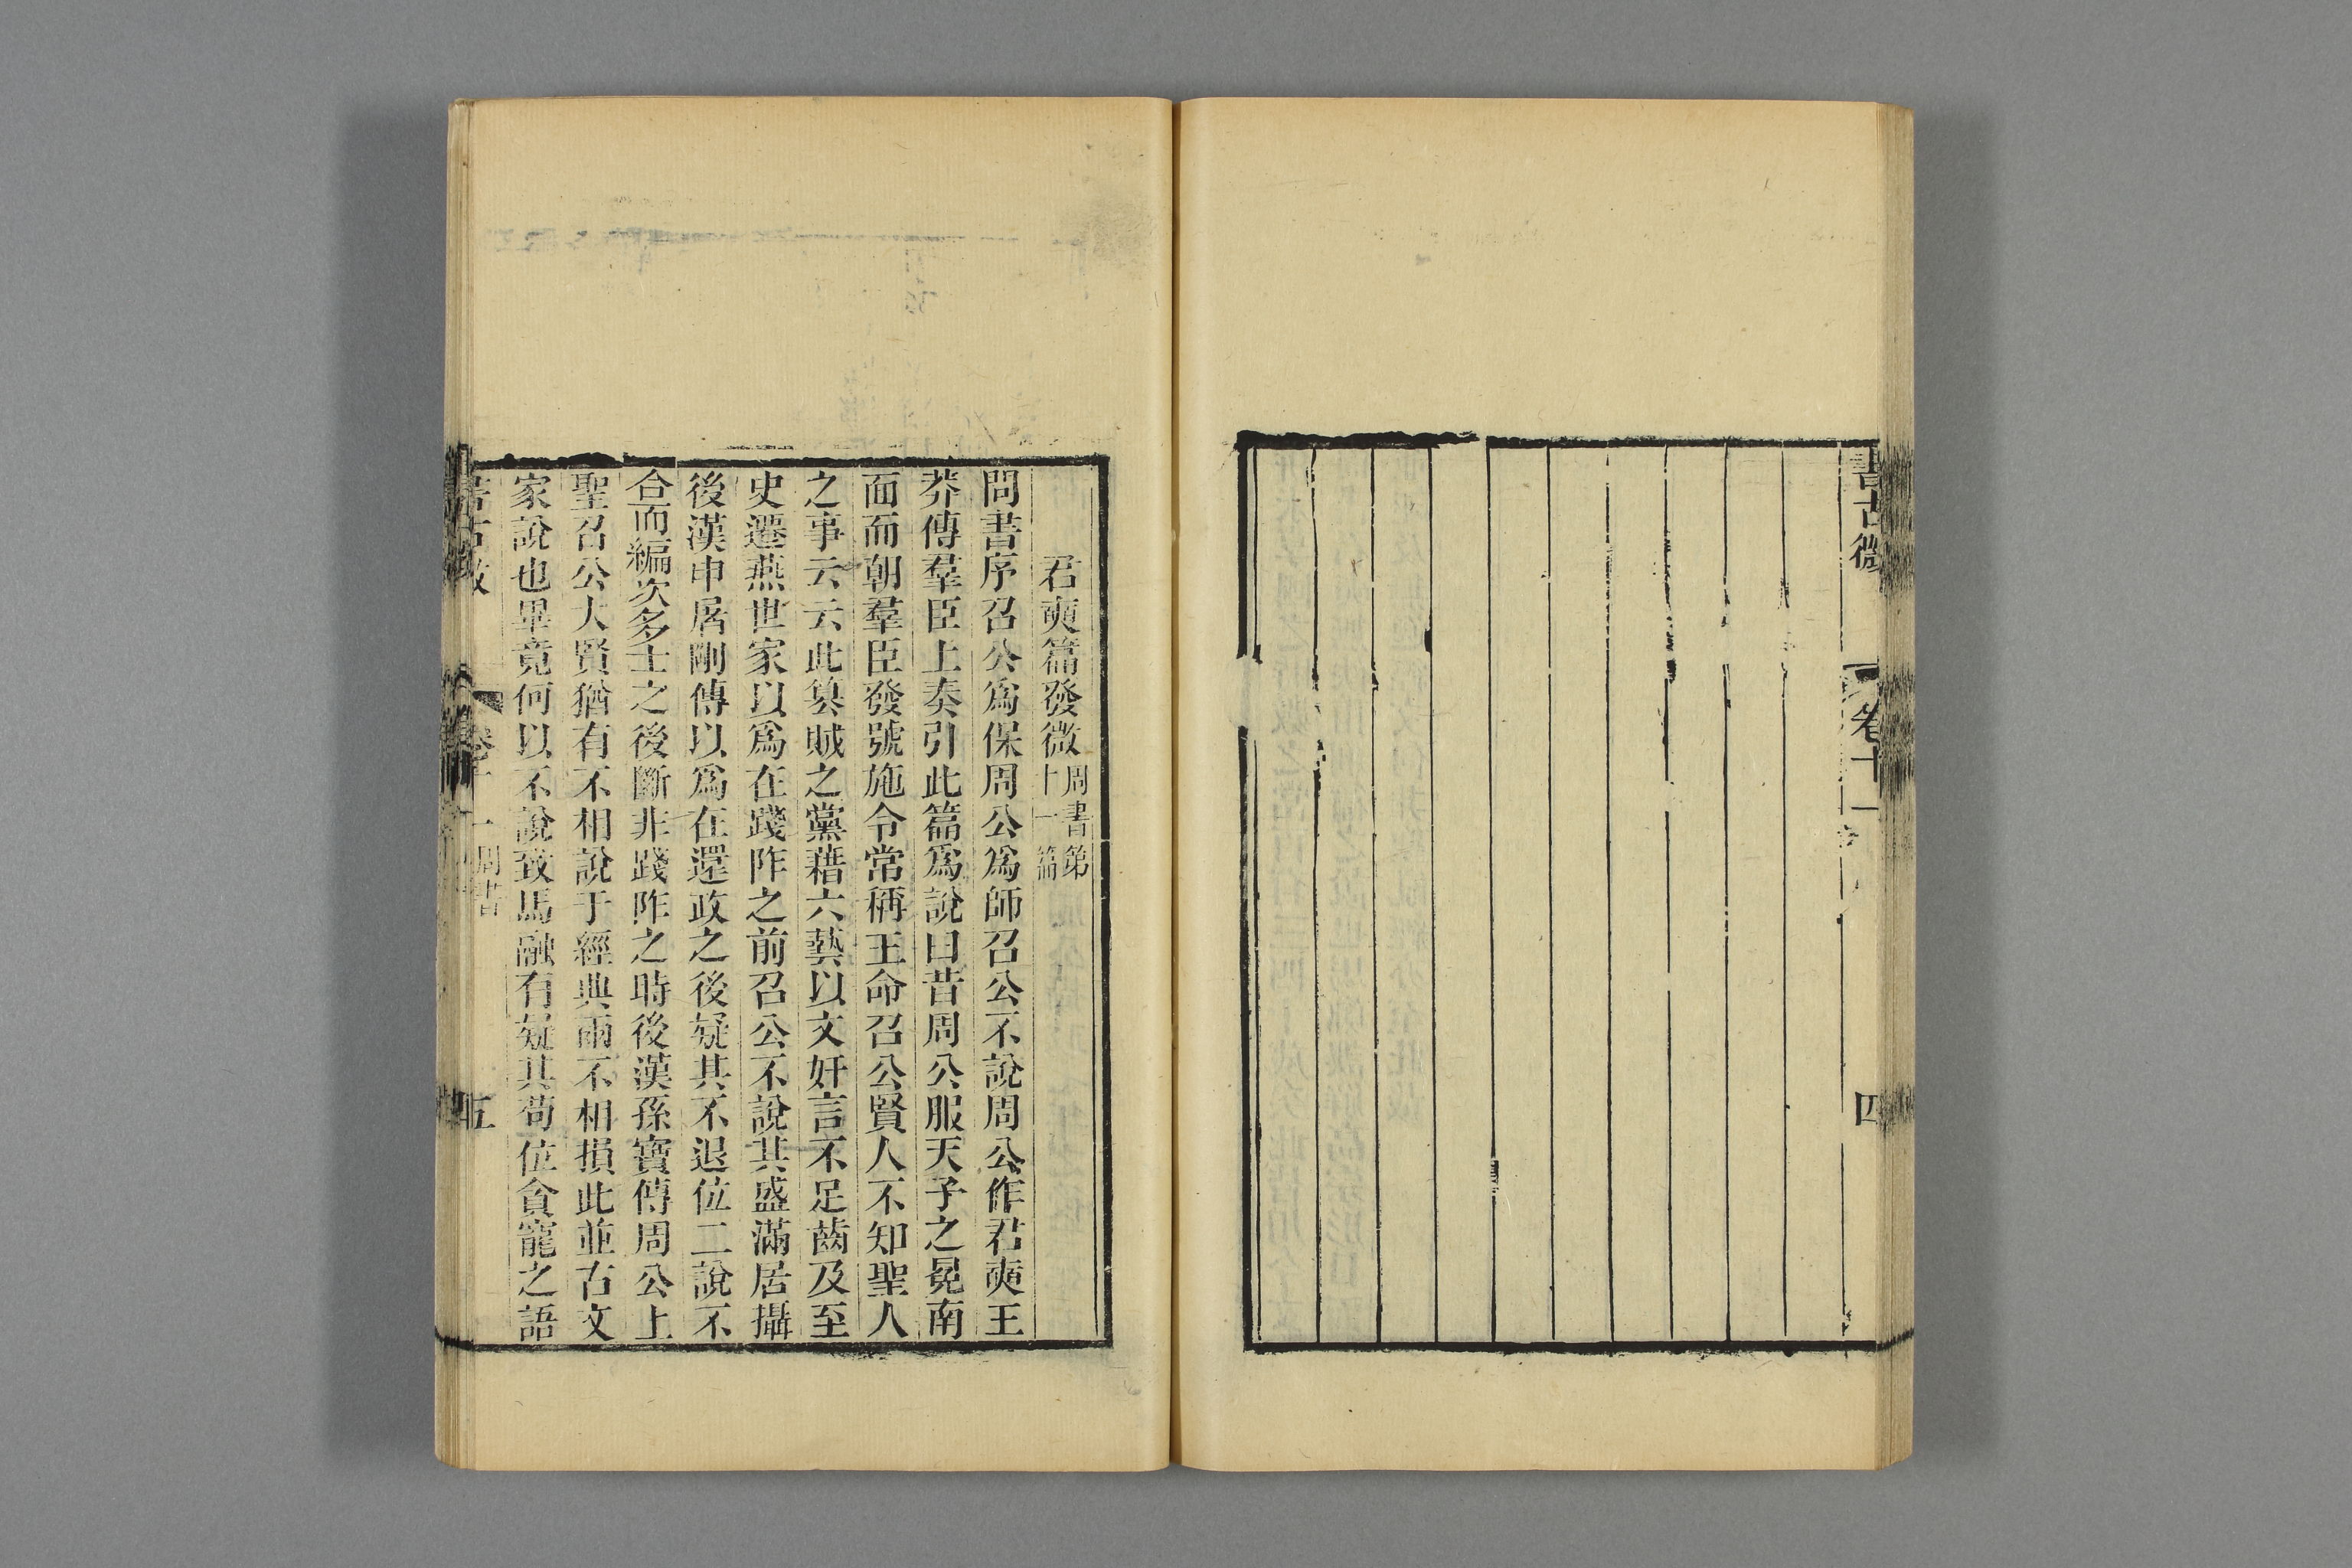 書古微
卷十一
四
君奭篇發微周書第十一篇
問書序召公爲保周公爲師召公不說周公作君奭王
莽傳羣臣上奏引此篇爲說曰昔周公服天子之冕南
面而朝羣臣發號施令常稱王命召公賢人不知聖人
之事云云此篡賊之黨藉六藝以文奸言不足齒及至
史遷燕世家以爲在踐阼之前召公不說其盛滿居攝
後漢申屠剛傳以爲在還政之後疑其不退位二說不
合而編次多士之後斷非踐阼之時後漢孫寶傳周公上
聖召公大賢猶有不相說于經典兩不相損此並古文
家說也畢竟何以不說致馬融有疑其苟位貪寵之語
書古微
卷十一 周書
五